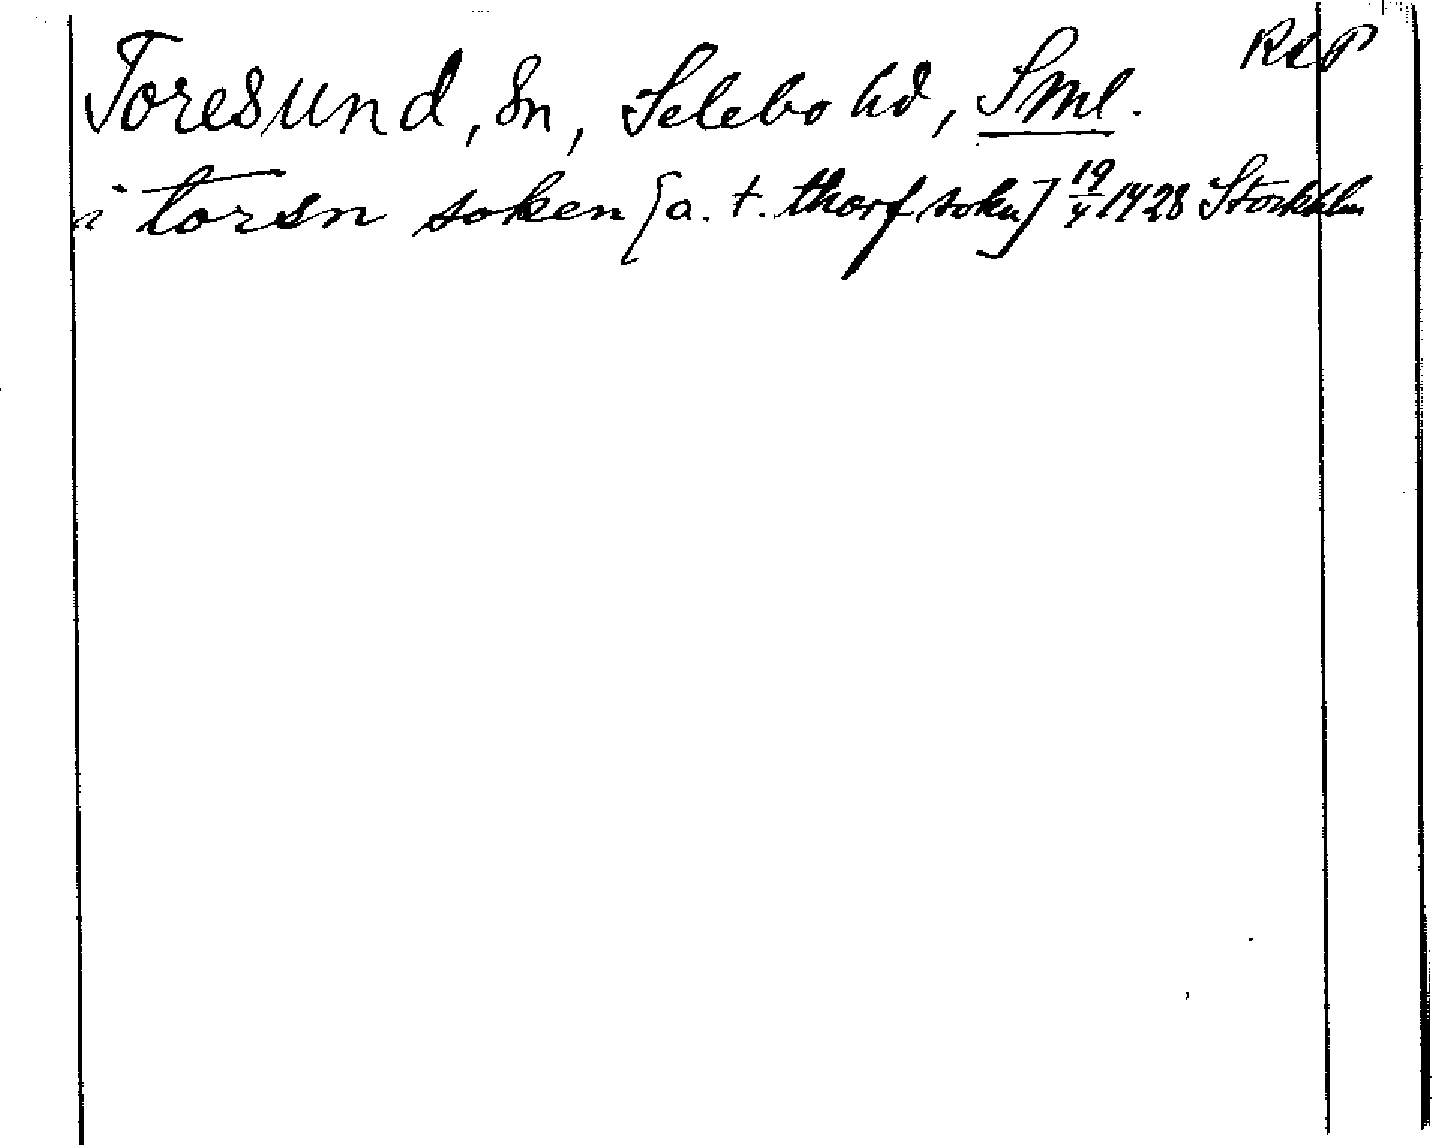 RAP
Toresund, Sn, Selebo hd, Sml.
i torsn soken [a. t. thorf sokn] 19/4 1428 Stockhlm